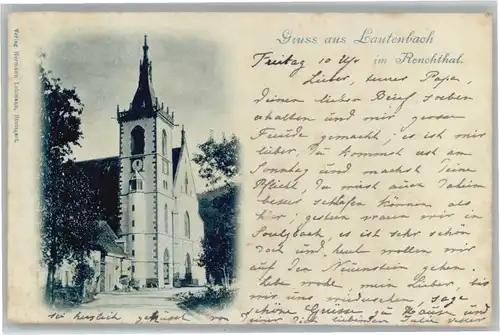 Verlag Hermann Lohmann, Stuttgart.
Gruss aus Lautenbach
im Renchthal.
Freitag 10 Uhr
Lieber, teurer Papa,
Deinen lieben Brief soeben
erhalten und mir grosse
Freude gemacht, es ist mir
lieber, Du kommst erst am
Sonntag und machst Deine
Pflicht, Du wirst auch daheim
besser schlafen können als
hier; gestern waren wir in
Sulzbach es ist sehr schön
dort und heut wollen wir
auf den gehen.
Lebe wohl, mein Lieber, bis
wir uns wiedersehen, sage
schöne Grüsse zu Hause und
sei herzlich geküsst von
einer Dich liebenden